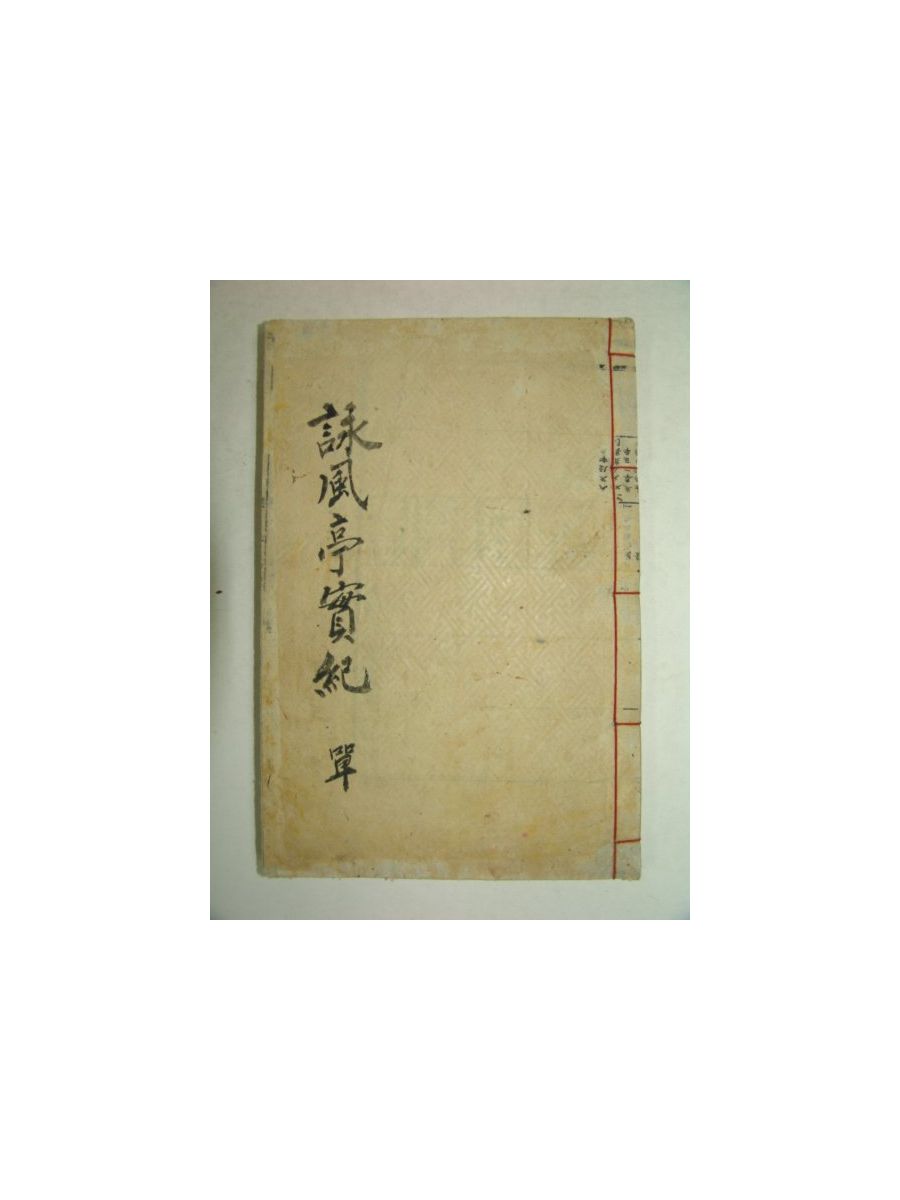 詠風亭實紀 單